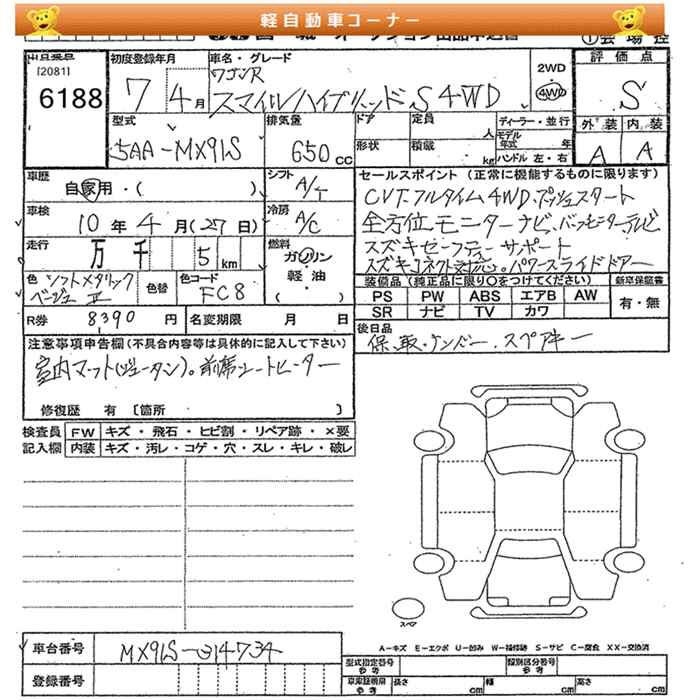 軽自動車コーナー
[2081]
6188
初度登録年月
7年4月
車名・グレード
ワゴンR
スマイルハイブリッドS 4WD
2WD
4WD
評価点
S
外装 内装
A A
型式
5AA-MX91S
排気量
650cc
ドア 定員 人
形状 積載 kg
ディーラー・並行
モデル年式 年
ハンドル 左・右
車歴
自家用・( )
シフト
A/T
車検
10年4月(27日)
冷房
A/C
走行
万 千 5 km
燃料
ガソリン
軽油
( )
色 ソフトメタリック
ベージュ Ⅱ
色替
色コード
FC8
R券 8390円
名変期限 月 日
セールスポイント (正常に機能するものに限ります)
CVT.フルタイム4WD.プッシュスタート
全方位モニターナビ.バックモニター.テレビ
スズキセーフティーサポート
スズキコネクト対応.パワースライドドアー
装備品(純正品に限り〇をつけてください)
新車保証書
PS PW ABS エアB AW
SR ナビ TV カワ
有・無
後日品
保.取.ナンバー.スペアキー
注意事項申告欄(不具合内容等は具体的に記入して下さい)
室内マット(ジュータン).前席シートヒーター
修復歴 有 〔箇所 〕
検査員
記入欄
FW キズ・飛石・ヒビ割・リペア跡・×要
内装 キズ・汚レ・コゲ・穴・スレ・キレ・破レ
スペア
車台番号
MX91S-314734
登録番号
A-キズ E-エクボ U-凹み W-補修跡 S-サビ C-腐食 XX-交換済
型式指定番号
参考
類別区分番号
参考
車庫証明用
参考
長さ cm
幅 cm
高さ cm